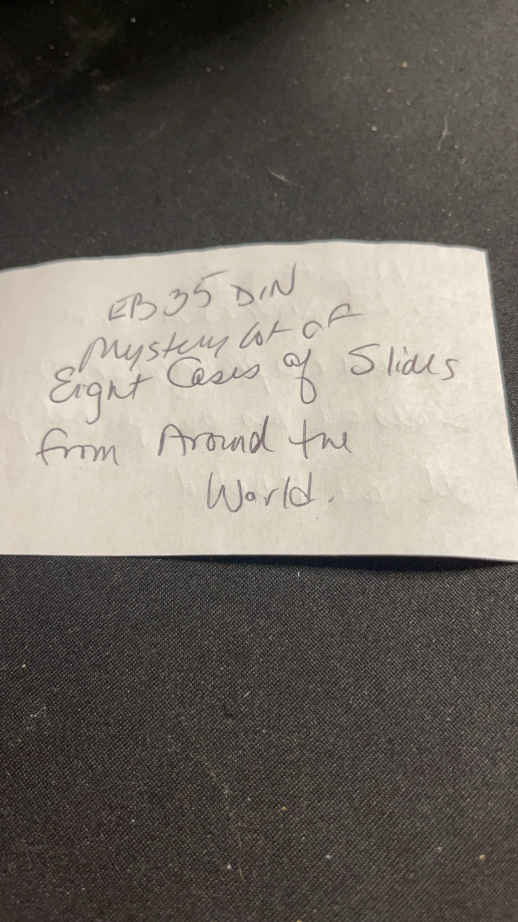 EB35 DIN
Mystery Lot of
Eight Cases of Slides
from Around the
World.